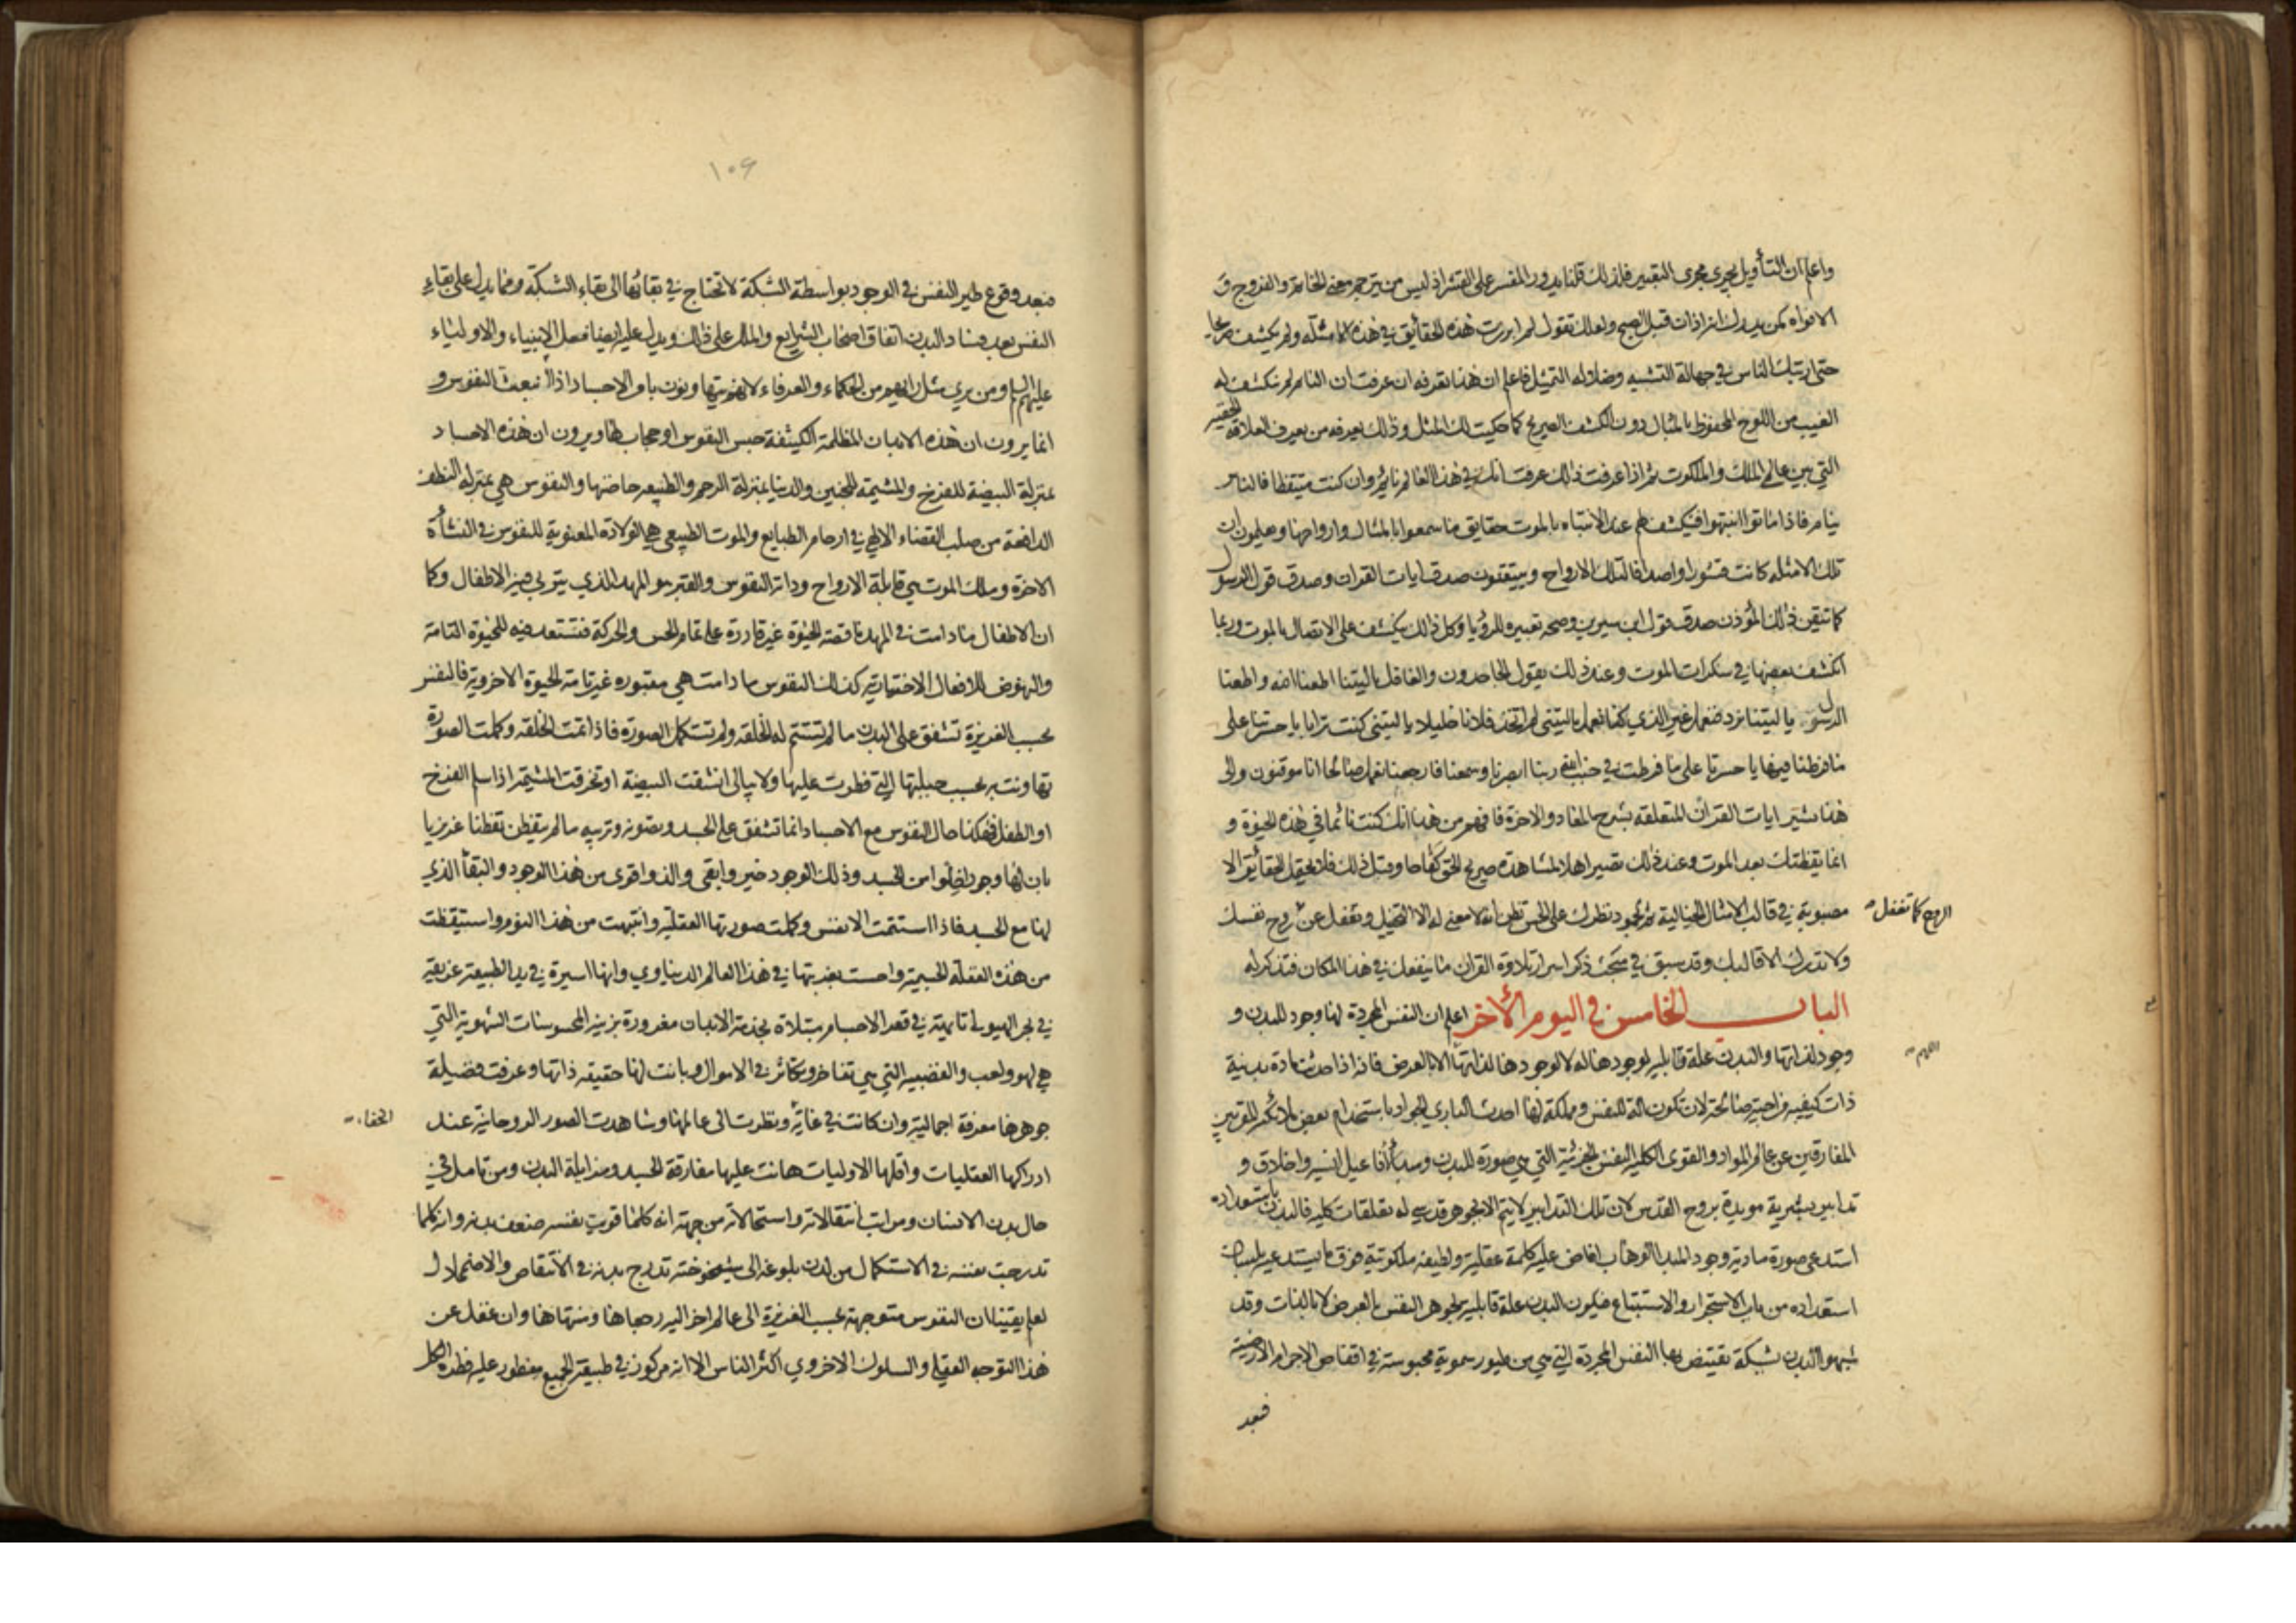 واعلم ان التأويل يجري مجرى التعبير فلذلك قلنا يدور المفسر على القشر اذ ليس من يترجم معنى الخاتم والفروج و
الافواه كمن يدرك انه اذان قبل الصبح ولعلك تقول لم ابرزت هذه الحقايق في هذه الامثلة ولم يكشف صريحا
حتى ارتبك الناس في جهالة التشبيه وضلالة التمثيل فاعلم ان هذا تعرفه ان عرفت ان النائم لم ينكشف له
الغيب من اللوح المحفوظ بالمثال دون الكشف الصريح كما حكيت لك المثل وذلك يعرفه من يعرف العلاقة الخفية
التي بين عالم الملك والملكوت ثم اذا عرفت ذلك عرفت انك في هذا العالم نائم وان كنت متيقظا فالناس
نيام فاذا ماتوا انتبهوا فينكشف لهم عند الانتباه بالموت حقايق ما سمعوا بالمثال وارواحها ويعلمون ان
تلك الامثله كانت قشورا واصدافا لتلك الارواح ويتيقنون صدق ايات القران وصدق قول الرسول
كما تيقن ذلك المؤذن صدق قول ابن سيرين وصحة تعبيره للرؤيا وكل ذلك ينكشف على الاتصال بالموت وربما
انكشف بعضها في سكرات الموت وعند ذلك يقول الجاحدون والغافل ياليتنا اطعنا الله واطعنا
الرسول يا ليتنا نرد فنعمل غير الذي كنا نعمل ياليتني لم اتخذ فلانا خليلا يا ليتني كنت ترابا يا حسرتنا على
ما فرطنا فيها يا حسرتا على ما فرطت في جنب الله ربنا ابصرنا وسمعنا فارجعنا نعمل صالحا انا موقنون والى
هذا تشير ايات القران المتعلقه بشرح المعاد والاخرة فافهم من هذا انك كنت نائما في هذه الحيوة و
انما يقظتك بعد الموت وعند ذلك تصير اهلا لمشاهدة صريح الحق كفاحا وقبل ذلك فلا يحتمل الحقايق الا
مصبوبة في قالب الامثال الخيالية ثم لجمود نظرك على الحس تظن انه لا معنى له الا التخيل وتغفل عن روح نفسك
الروح كما تغفل
ولا تدرك الا قالبك وقد سبق في مبحث ذكر اسرار تلاوة القران ما ينفعك في هذا المكان فتذكر له
الباب الخامس في اليوم الأخر اعلم ان النفس المجردة لها وجود للبدن و
وجود لذاتها والبدن علة قابلية لوجودها له لا لوجودها لذاتها الا بالعرض فانه اذا حدثت مادة بدنية
ذات كيفيه مزاجية صالحة لان تكون الة للنفس ومملكة لها احدث الباري الجواد باستخدام بعض ملائكته المقربين
المفارقين عن عالم المواد والقوى الكلية النفس الجزئية التي هي صورة للبدن ومبدأ أفاعيل انسيه واخلاق و
تدابير بشرية مويدة بروح القدس لان تلك التدابير لا يتم الا بجوهر قدسي له تعلقات كليه فالبدن باستعداده
استدعى صورة مادية وجود المبدا الوهاب افاض عليه كلمة عقلية ولطيفه ملكوتية فوق ما يستدعيه بلسان
استعداده من باب الاستجرار والاستتباع فيكون البدن علة قابلية لجوهر النفس بالعرض لا بالذات وقد
شبهوا البدن بشبكة يقتنص بها النفس المجردة التي هي من طيور سموية محبوسة في اقفاص الاجرام الارضية
فبعد
١٠٦
فبعد وقوع طير النفس في الوجود بواسطة الشبكة لا تحتاج في بقائها الى بقاء الشبكة ومما يدل على بقاء
النفس بعد فساد البدن اتفاق اصحاب الشرايع والملل على ذلك ويدل عليه ايضا فعل الانبياء والاولياء
عليهم السلام ومن يري مثل رايهم من الحكماء والعرفاء لانهم يتهاونون بامر الاجساد اذا انبعث النفوس و
انما يرون ان هذه الابدان المظلمة الكثيفة حبس النفوس او حجاب لها ويرون ان هذه الاجساد
بمنزلة البيضة للفرخ والمشيمة للجنين والدنيا بمنزلة الرحم والطبيعه حاضنها والنفوس هي بمنزلة النطف
الدافعة من صلب القضاء الالهي في ارحام الطبايع والموت الطبيعي هي الولادة المعنوية للنفوس في النشأة
الاخرة وملك الموت هي قابلة الارواح وداية النفوس والقبر هو المهد الذي يتربى فيه الاطفال وكما
ان الاطفال ما دامت في المهد ناقصة الحيوة غير قادرة على تمام الحس والحركة فتستعد فيه للحيوة التامة
والنهوض للافعال الاختيارية كذلك النفوس ما دامت هي مقبوره غير تامة الحيوة الاخروية فالنفس
بحسب الغريزة تشفق على البدن ما لم تستتم له الخلقه ولم تستكمل الصورة فاذا تمت الخلقه وكملت الصورة
تهاونت به بحسب جبلتها التي فطرت عليها ولا يبالى انشقت البيضة او تخرقت المشيمة اذا سلم الفرخ
او الطفل فهكذا حال النفوس مع الاجساد انما تشفق على الجسد وتصونه وتربيه ما لم يتفطن تفطنا غريزيا
بان لها وجودا خلوا من الجسد وذلك الوجود خير وابقى والذ واقوى من هذا الوجود والبقأ الذي
لها مع الجسد فاذا استتمت الانفس وكملت صورتها العقلية وانتبهت من هذا النوم واستيقظت
من هذه الغفلة الجسمية واحست بغربتها في هذا العالم الدنياوي وانها اسيرة في يد الطبيعة غريقة
في بحر الهيولى تايهة في قعر الاجسام مبتلاة بخدمة الابدان مغرورة بزينة المحسوسات الشهوية التي
هي لهو ولعب والغضبيه التي هي تفاخر وتكاثر في الاموال وبانت لها حقيقه ذاتها وعرفت فضيلة
جوهرها معرفة اجمالية وان كانت في غاية ونظرت الى عالمها وشاهدت الصور الروحانية عند
الخفاء
ادراكها العقليات واقلها الاوليات هانت عليها مفارقة الجسد ومزايلة البدن ومن تامل في
حال بدن الانسان ومراتب انتقالاته واستحالاته من جهة انه كلما قويت نفسه ضعف بدنه وانه كلما
تدرجت نفسه في الاستكمال من لدن بلوغه الى شيخوخته تدرج بدنه في الانتقاص والاضمحلال
لعلم يقينا ان النفوس متوجهة بحسب الغريزة الى عالم اخر اليه رجعاها ومنتهاها وان غفل عن
هذا التوجه العقلي والسلوك الاخروي اكثر الناس الا انه مركوز في طبيعة الجميع مفطور عليه فطرة الكل